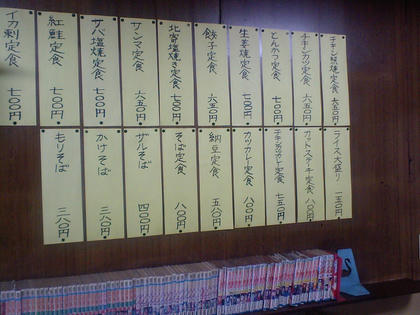 チキン照焼定食 六五〇円
チキンカツ定食 六五〇円
とんかつ定食 七〇〇円
生姜焼定食 七〇〇円
餃子定食 六五〇円
北寄塩焼き定食 七〇〇円
サンマ定食 六五〇円
サバ塩焼定食 七〇〇円
紅鮭定食 七〇〇円
イカ刺定食 七〇〇円
ライス大盛り 一五〇円
カットステーキ定食 八〇〇円
チキンカツカレー定食 七五〇円
カツカレー定食 八〇〇円
納豆定食 五八〇円
そば定食 八〇〇円
ザルそば 四〇〇円
かけそば 三八〇円
もりそば 三八〇円